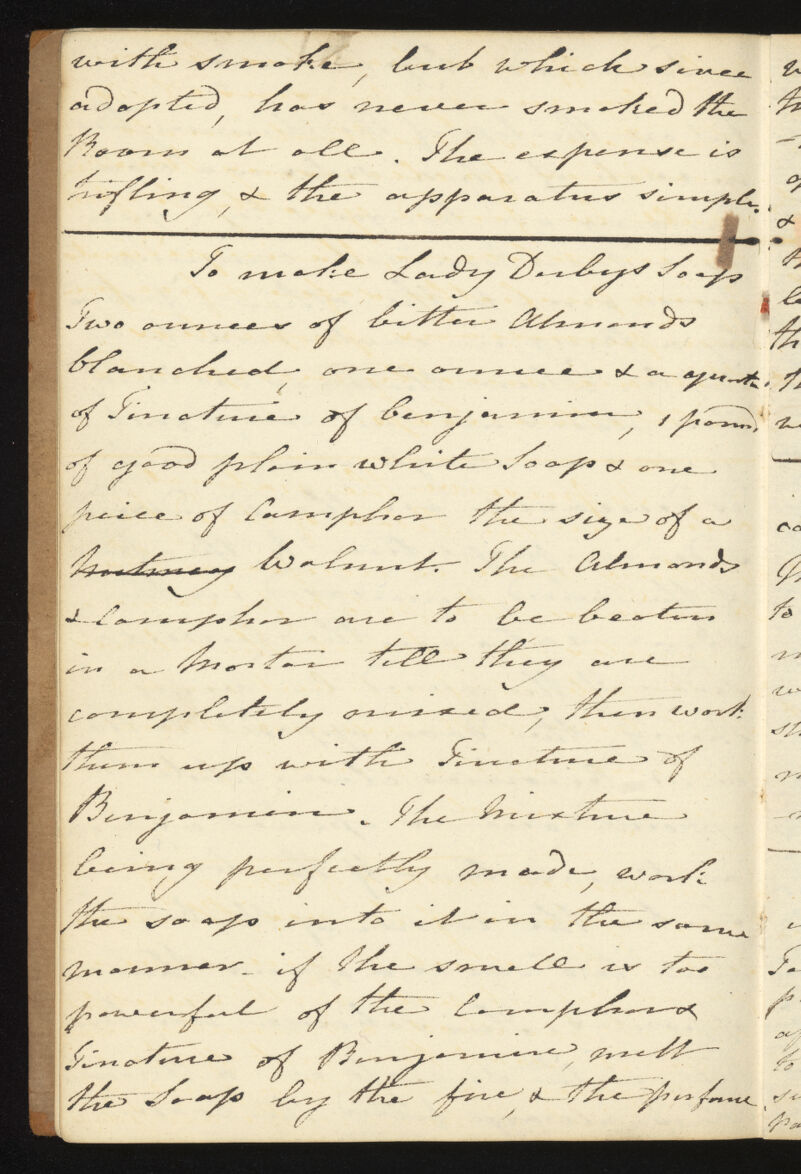 with smoke, but which since
adopted, has never smoked the
Room at all. The expense is
trifling, & the apparatus simple.
To make Lady Derbys Soap
Two ounces of bitter Almonds
blanched, one ounce & a quarter
of Tincture of benjamin, 1 pound
of good plain white Soap & one
peice of Camphor the size of a
Nutmeg Walnut. The Almonds
& Camphor are to be beaten
in a Mortar till they are
completely mixed, then work
them up with Tincture of
Benjamin. The Mixture
being perfectly made, work
the soap into it in the same
manner - if the smell is too
powerful of the Camphor &
Tincture of Benjamin, melt
the Soap by the fire, & the perfume